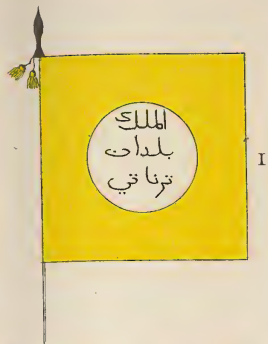 الملك
بلدان
ترناتي
I